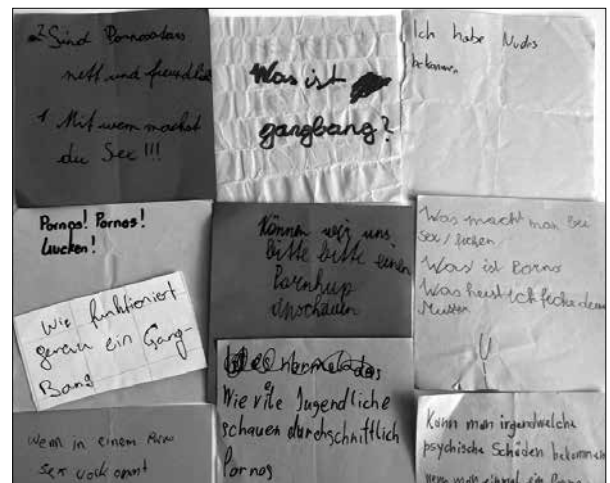 2 Sind Pornostars
nett und freundlich
1 Mit wem machst
du Sex !!!
Was ist
gangbang?
Ich habe Nudes
bekommen
Pornos! Pornos!
Gucken!
Können wir uns
bitte bitte einen
Pornhup
anschauen
Was macht man bei
Sex/ficken
Was ist Porno
Was heist ich ficke deine
Mutter
Wie funktioniert
genau ein Gang-
Bang
Wie viele Jugendliche
schauen durchschnittlich
Pornos
Wenn in einem Porno
sex vorkommt
Kann man irgendwelche
psychische Schäden bekommen
wenn man einmal ein Porno